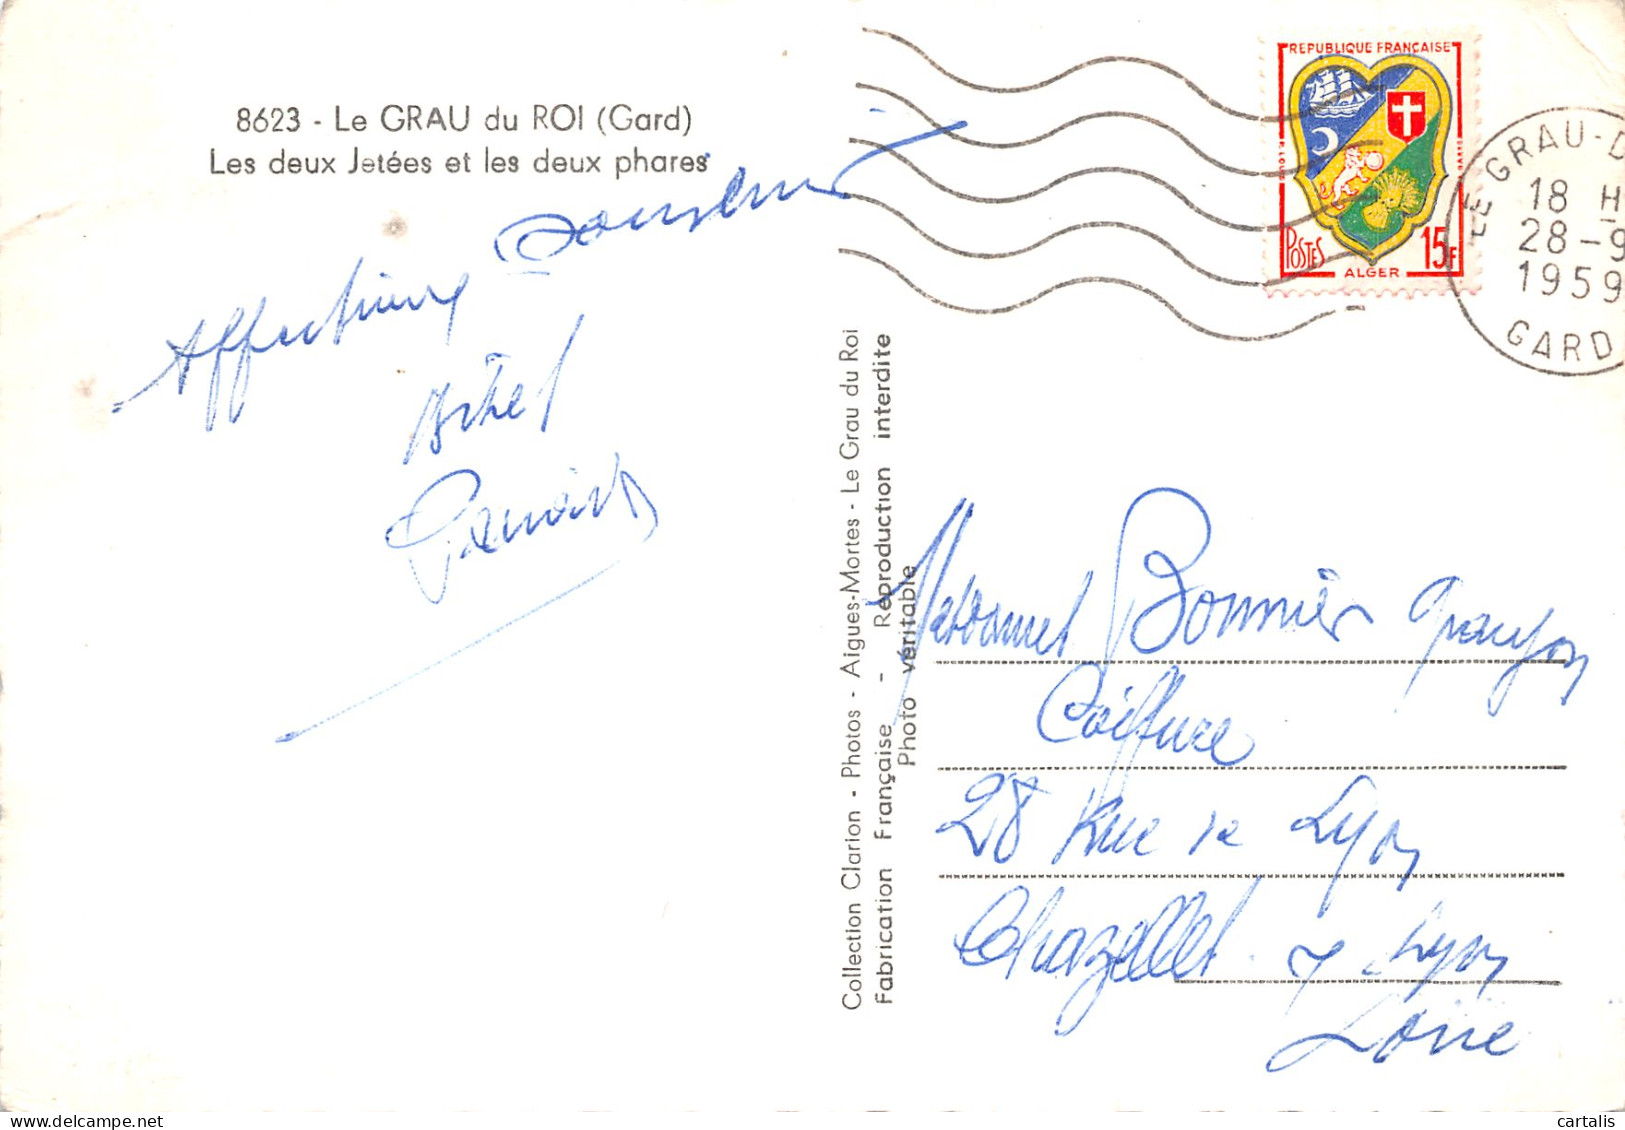 8623 - Le GRAU du ROI (Gard)
Les deux Jetées et les deux phares
Affectueux Souvenir
REPUBLIQUE FRANÇAISE
POSTES
ALGER
15F
LE GRAU-D
18 H
28-9
1959
GARD
Collection Clarion - Photos - Aigues-Mortes - Le Grau du Roi
Fabrication Française - Reproduction interdite
Photo véritable
Bonnier
Coiffure
28 Rue de Lyon
Chazelles s/ Lyon
Loire
cartalis